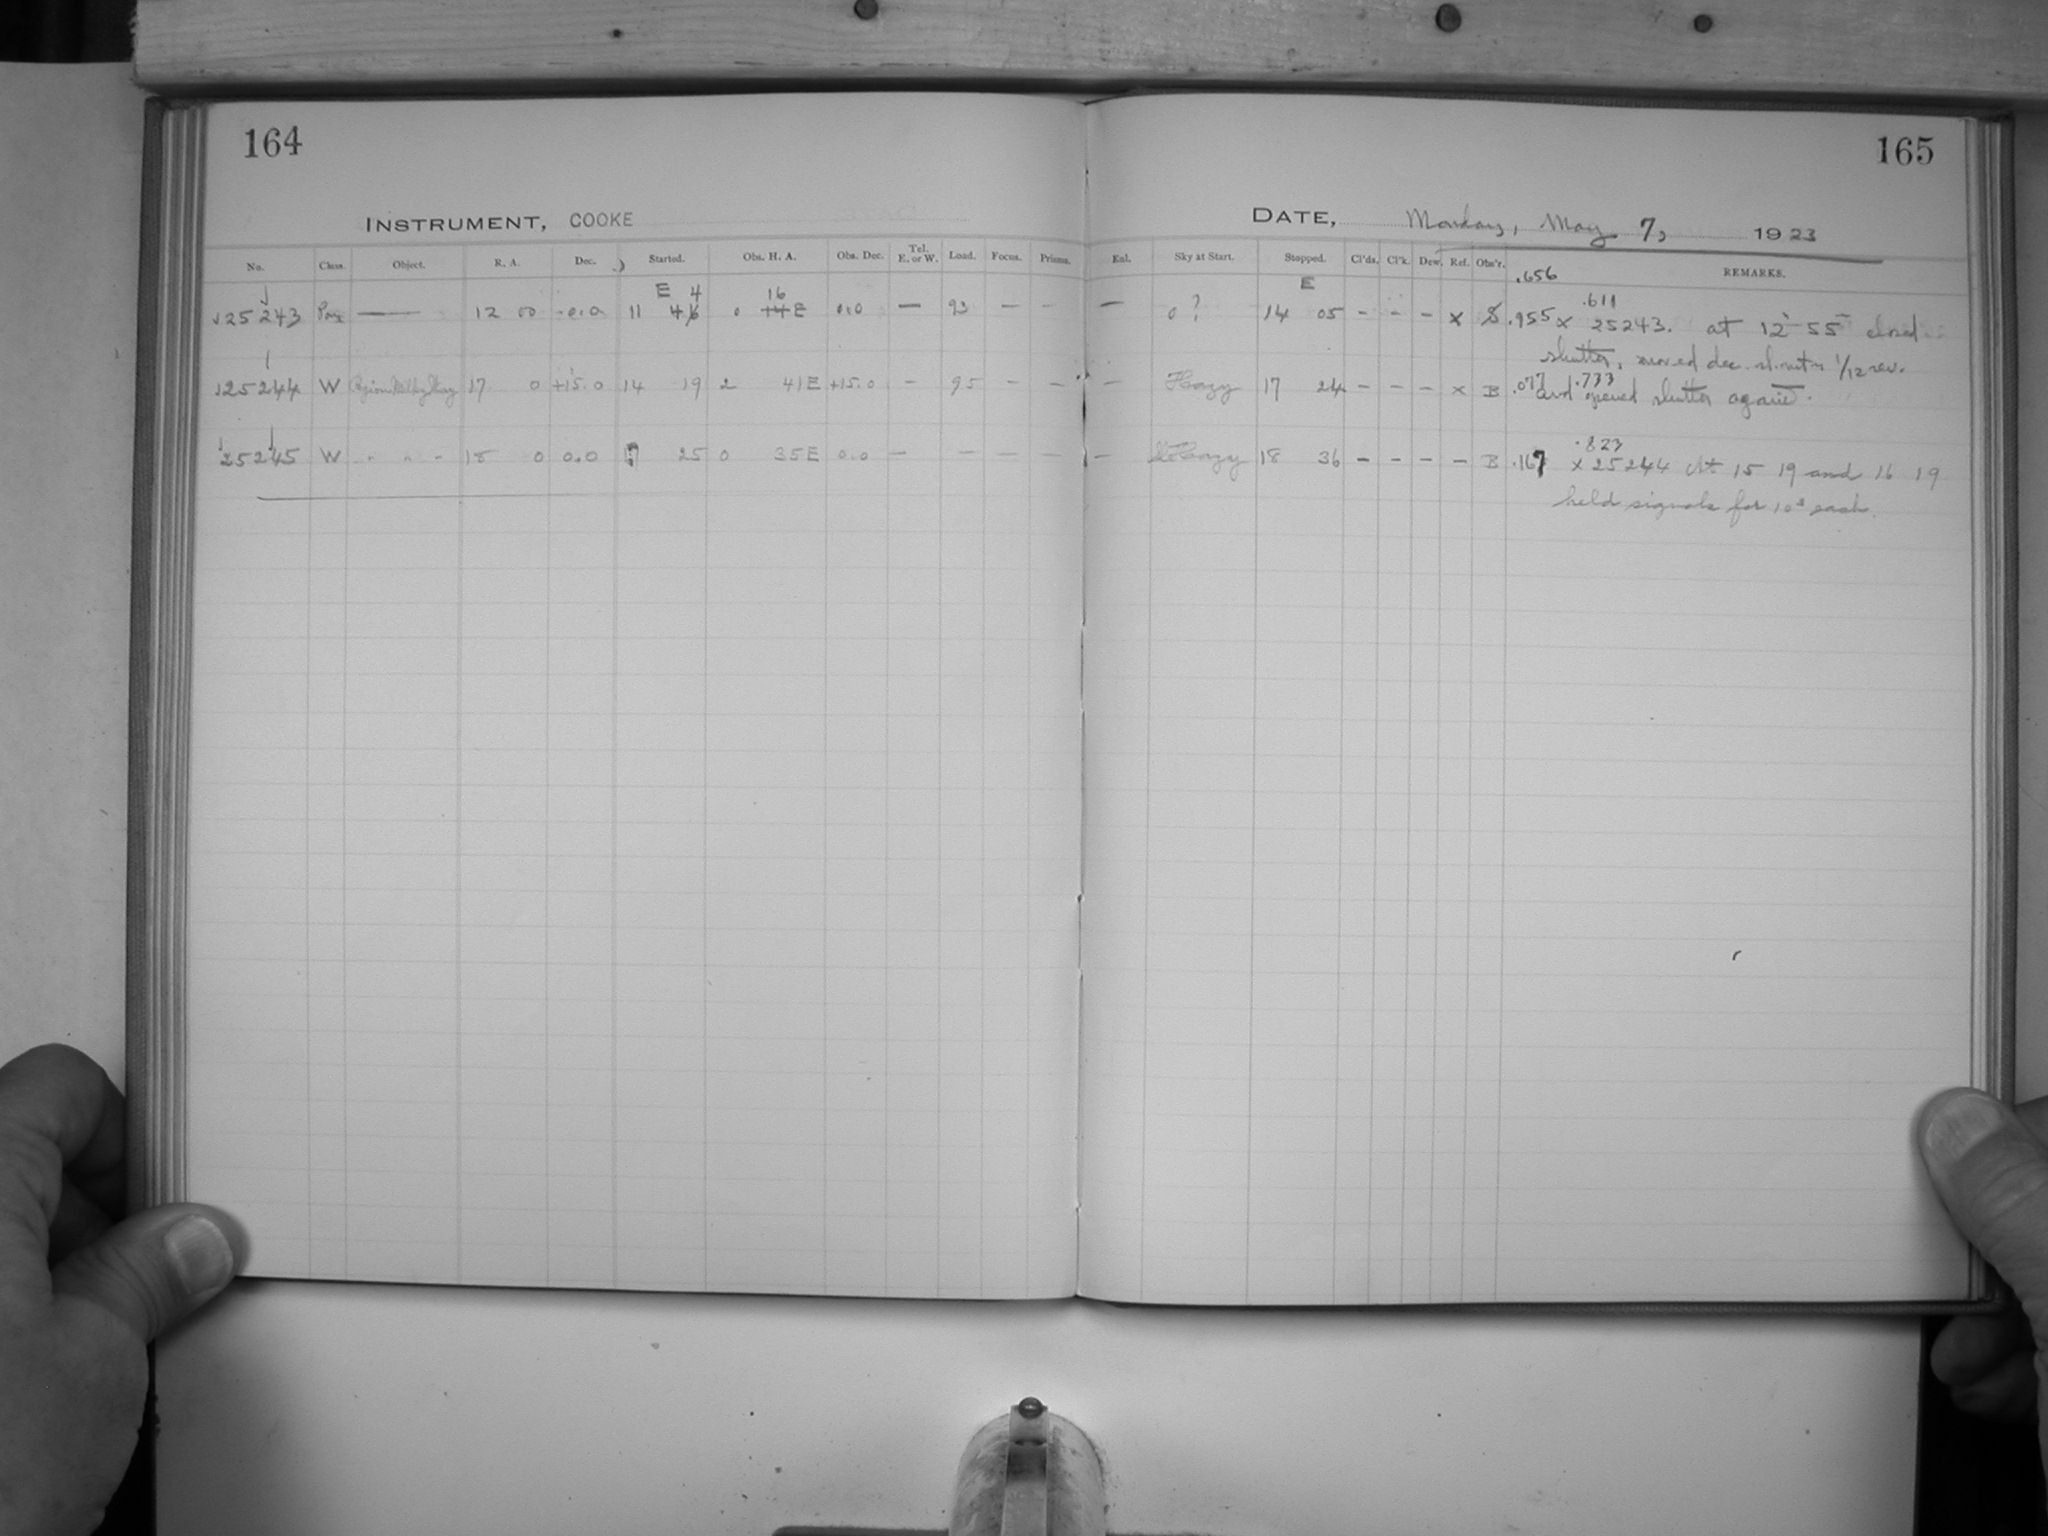 164
165
INSTRUMENT, COOKE
DATE, Monday, May 7, 1923
No. Class. Object. R. A. Dec. Started. Obs. H. A. Obs. Dec. Tel. E. or W. Load. Focus. Prisms. Enl. Sky at Start. Stopped. Cl'ds. Cl'k. Dew. Ref. Obs'r. REMARKS.
.656
E 4 16 E .611
25243 — 12 00 0.0 11 46 0 14 E 0.0 — 93 — — — 0 ? 14 05 — — — x S .955 x 25243. at 12 55 closed
shutter, moved dec. 1/12 rev.
.733
25244 W Region Milky Way 17 0 +15.0 14 19 2 41 E +15.0 — 95 — — — Hazy 17 24 — — — x B .077 and opened shutter again.
.823
25245 W " " " 18 0 0.0 17 25 0 35 E 0.0 — — — — — Hazy 18 36 — — — — B .167 x 25244 At 15 19 and 16 19
held signals for 10s each.